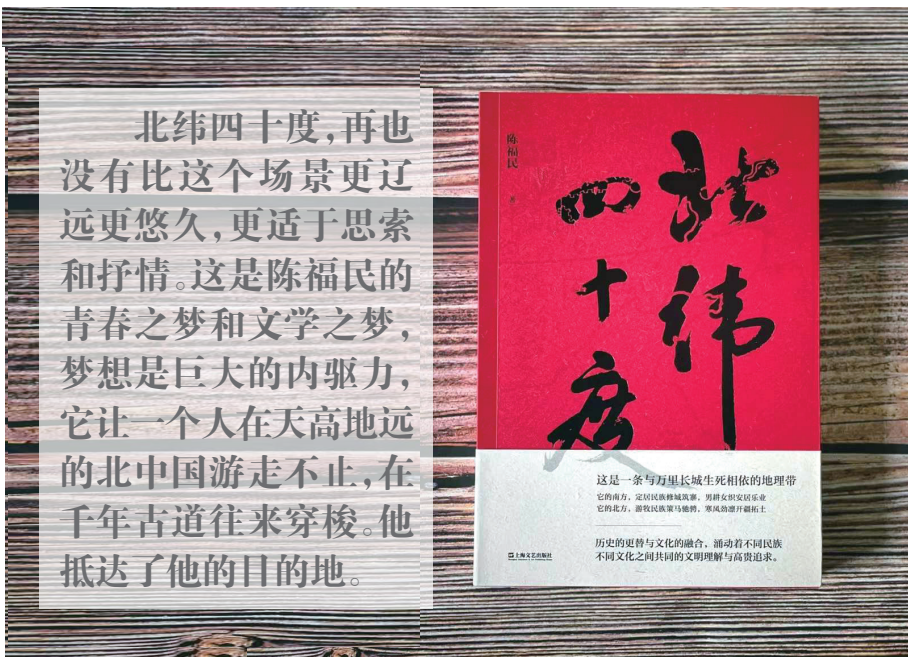 北纬四十度,再也
没有比这个场景更辽
远更悠久,更适于思索
和抒情。这是陈福民的
青春之梦和文学之梦,
梦想是巨大的内驱力,
它让一个人在天高地远
的北中国游走不止,在
千年古道往来穿梭。他
抵达了他的目的地。
陈福民
著
北纬
四十度
这是一条与万里长城生死相依的地理带
它的南方,定居民族修城筑寨,男耕女织安居乐业
它的北方,游牧民族策马驰骋,寒风劲凛开疆拓土
历史的更替与文化的融合,涌动着不同民族
不同文化之间共同的文明理解与高贵追求。
上海文艺出版社